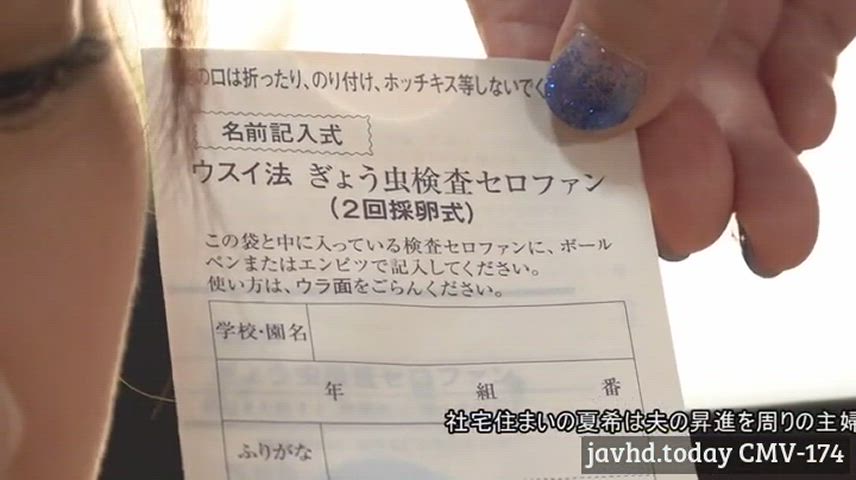 の口は折ったり、のり付け、ホッチキス等しないでく
名前記入式
ウスイ法 ぎょう虫検査セロファン
(2回採卵式)
この袋と中に入っている検査セロファンに、ボール
ペンまたはエンピツで記入してください。
使い方は、ウラ面をごらんください。
学校・園名
年 組 番
ふりがな
社宅住まいの夏希は夫の昇進を周りの主婦
javhd.today CMV-174